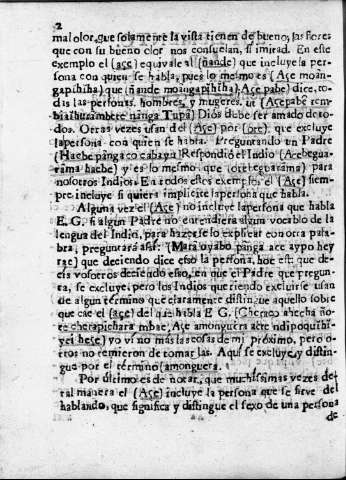 2
mal olor, que solamente la vista tienen de bueno, las flores
que con su bueno olor nos consuelan, si imitad. En este
exemplo el (açe) equivale al (ñande) que incluye la per-
sona con quien se habla, pues lo mesmo es (Açe moân-
gapîhîha) que (ñande moangapîhîha) Açe pabe) dice, to-
das las personas, hombres, y mugeres, ut (Açepabê
nânga Tupâ) Diós debe ser amado de to-
dos. Otras vezes usan del (Açe) por (ore), que excluye
lapersona con quien se habla. Preguntando un Padre
(Haebe pânga co cabaya) Respondiò el Indio (Acebegua-
râma haebe) y es lo mesmo que (orebeguarâma) para
nosotros Indios. En todos estes exemplos el (Açe) siem-
pre incluye si quiera implicite lapersona que habla.
Alguna vez el (Açe) no incluye lapersona que habla
E. G. si algun Padre no entendiera algun vocablo de la
lengua del Indio, para hazerselo explicar con otra pala-
bra, preguntarà assi: (Marâ oyabo pânga ace aypo hey
rae) que deciendo dice esso la persona, hoc est: que de-
cis vosotros deciendo esso, en que el Padre que pregun-
ta, se excluye, pero los Indios queriendo excluirse usan
de algun termino que claramente distingue aquello sobre
que cae el (açe) del que habla E. G. (Cheraco ahecha ño-
te cherapichara mbae, Açe amonguera acte ndipoquîhî-
yei hese) yo vi no màs las cosas de mi proximo, pero o-
tros no remieron de tomarlas. Aqui se excluye, y distin-
gue por el termino (amonguera.
Por ultimo es de notar, que muchissimas vezes de
tal manera el (Açe) incluye la persona que se sirve del
hablando, que significa y distingue el sexo de una persona
de